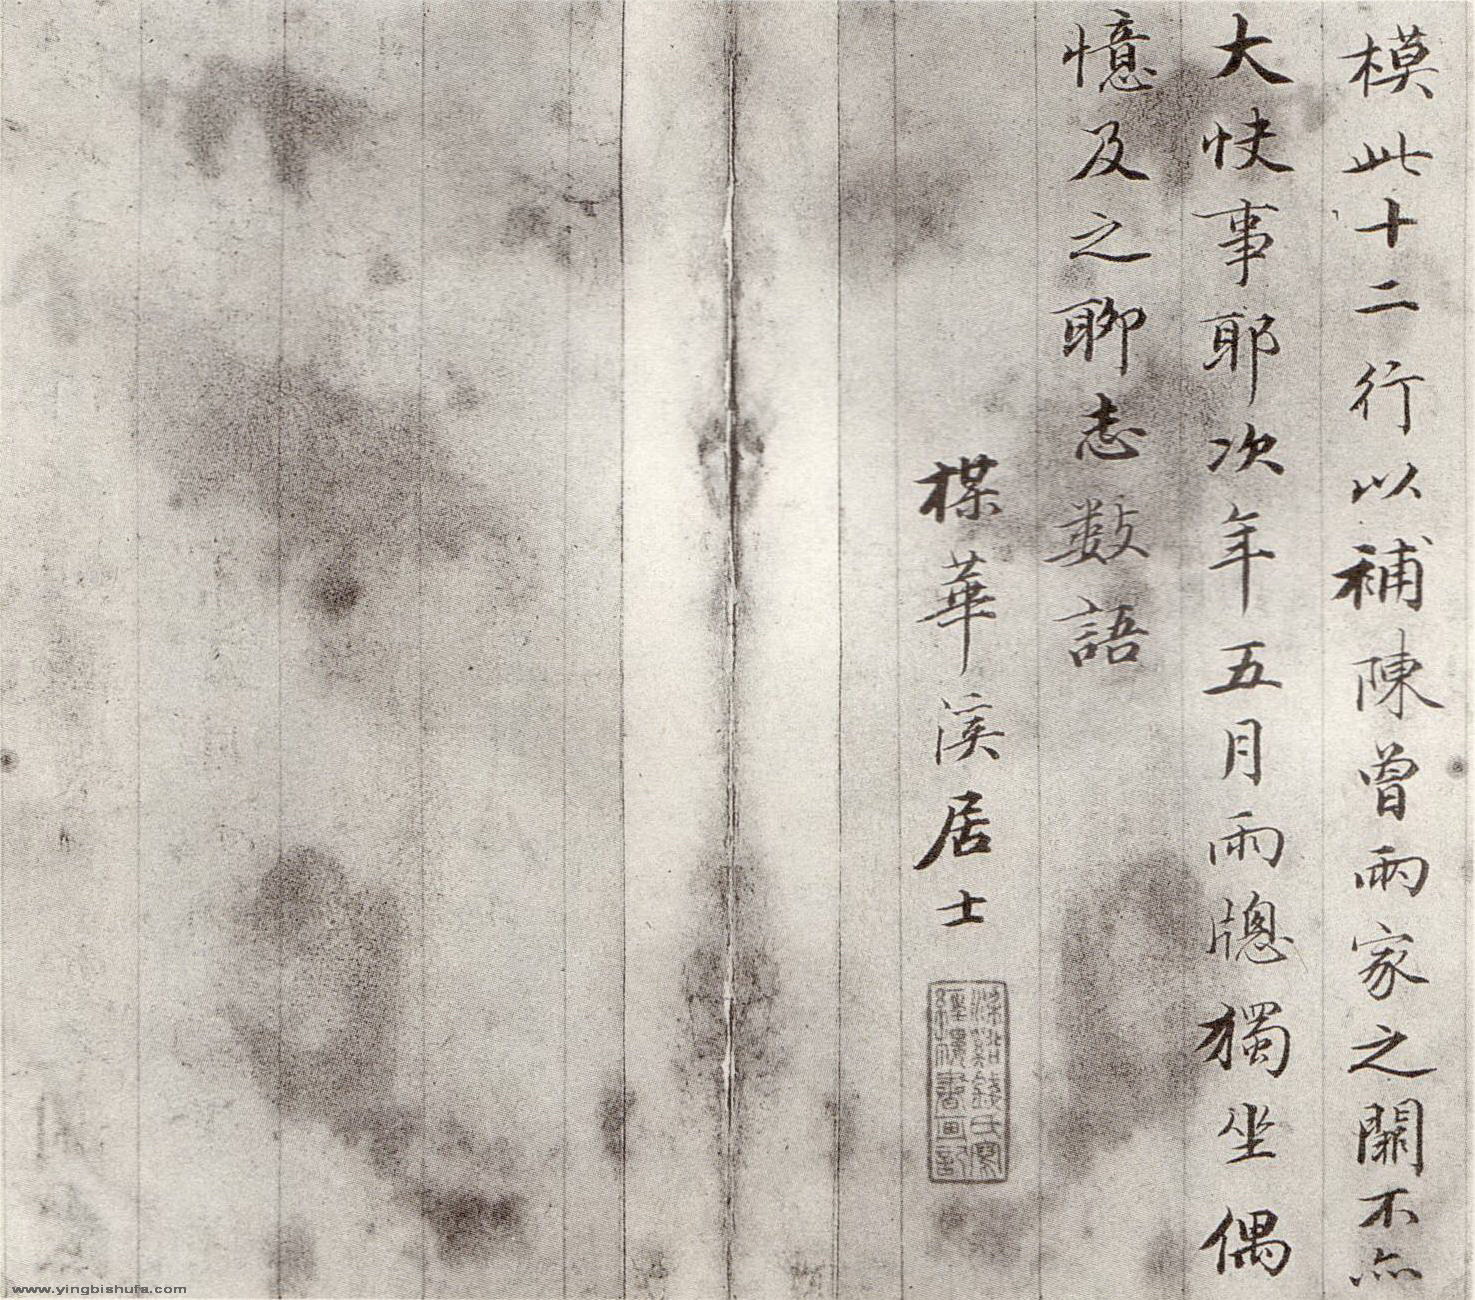 模此十二行以補陳曾兩家之闕不亦
大快事耶次年五月雨牕獨坐偶
憶及之聊志數語
楳華溪居士
www.yingbishufa.com